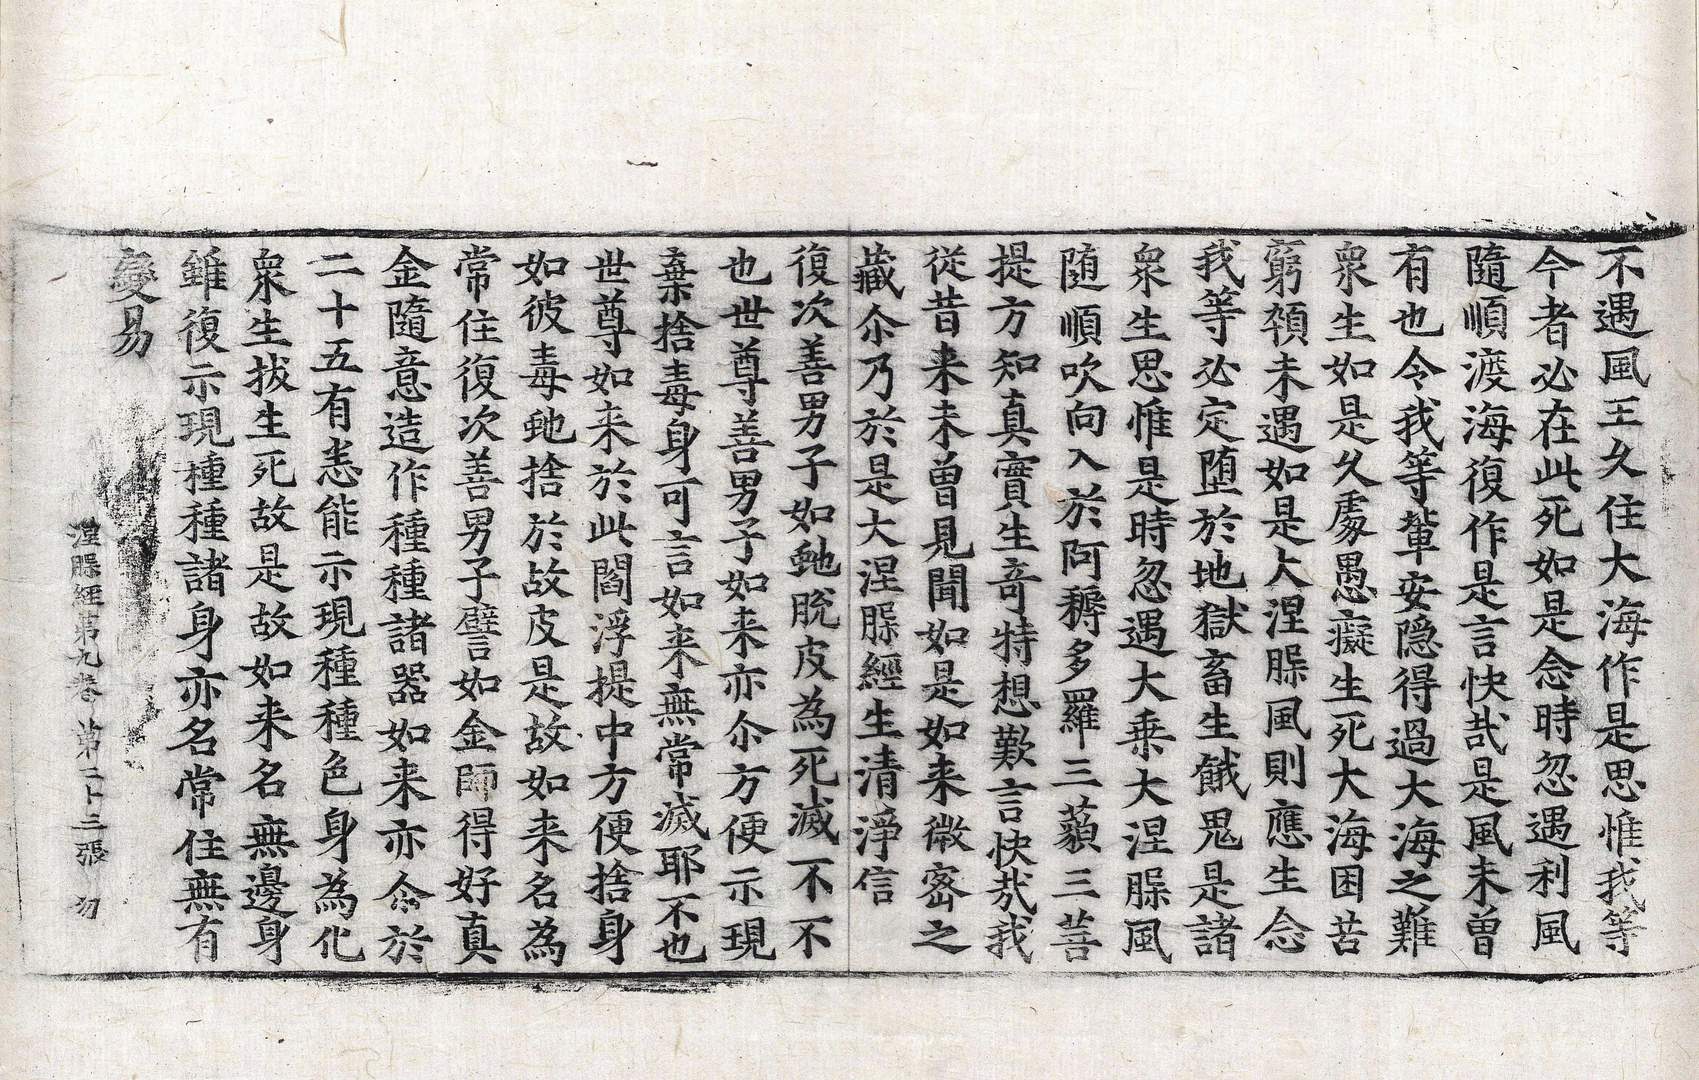 不遇風王久住大海作是思惟我等
今者必在此死如是念時忽遇利風
隨順渡海復作是言快哉是風未曾
有也令我等軰安隱得過大海之難
衆生如是久處愚癡生死大海困苦
窮顇未遇如是大涅槃風則應生念
我等必定堕於地獄畜生餓鬼是諸
衆生思惟是時忽遇大乗大涅槃風
随順吹向入於阿耨多羅三藐三菩
提方知真實生竒特想歎言快㢤我
従昔来未曽見聞如是如来微宻之
藏尒乃於是大涅槃經生清淨信
復次善男子如虵脫皮為死滅不不
也世尊善男子如来亦尒方便示現
棄捨毒身可言如来無常滅耶不也
世尊如来於此閻浮提中方便捨身
如彼毒虵捨於故皮是故如来名為
常住復次善男子譬如金師得好真
金隨意造作種種諸器如来亦尒於
二十五有悉能示現種種色身為化
衆生拔生死故是故如来名無邊身
雖復示現種種諸身亦名常住無有
變易
涅槃經第九卷 第二十三張 勿